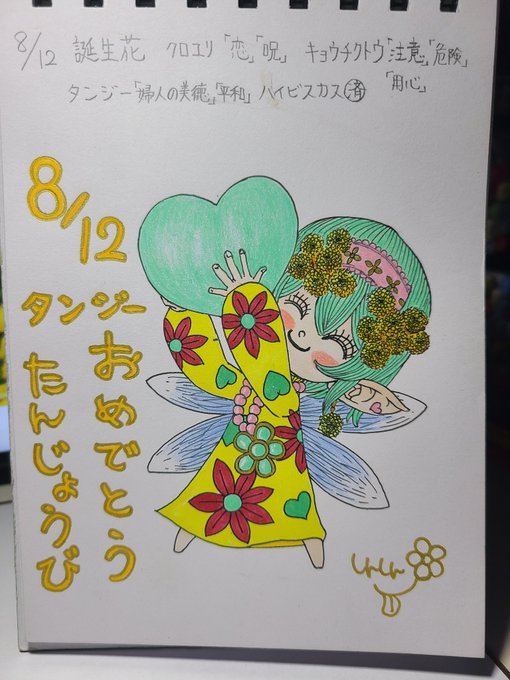 8/12 誕生花 クロユリ「恋」「呪」 キョウチクトウ「注意」「危険」
「用心」
タンジー「婦人の美徳」「平和」 ハイビスカス㊈
8/12
タンジー
おめでとう
たんじょうび